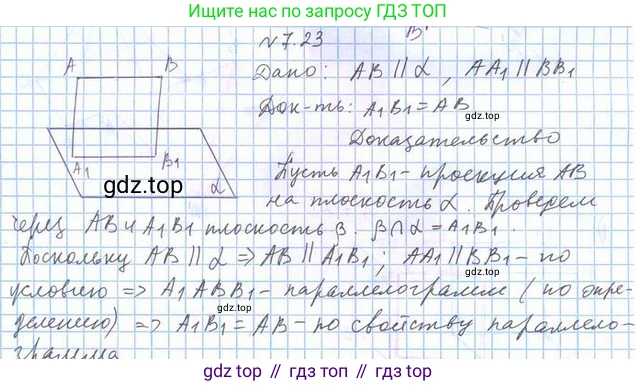 Ищите нас по запросу ГДЗ ТОП
№7.23
Дано: AB || α, AA₁ || BB₁
Док-ть: A₁B₁ = AB
Доказательство
Пусть A₁B₁ - проекция AB
на плоскость α. Проведем
через AB и A₁B₁ плоскость β. β∩α = A₁B₁.
Поскольку AB || α ⇒ AB || A₁B₁; AA₁ || BB₁ - по
условию ⇒ A₁ABB₁ - параллелограмм (по опре-
делению) ⇒ A₁B₁ = AB - по свойству параллело-
грамма
A B
A₁ B₁
α
gdz.top
gdz.top // gdz.top // gdz.top